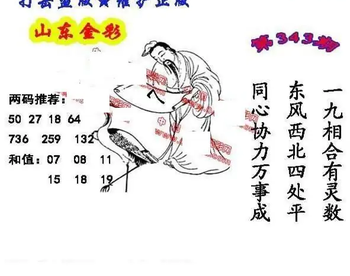 打击盗版 维护正版
山东金彩
第343期
两码推荐：
50 27 18 64
736 259 132
和值：07 08 11
15 18 19
一九相合有灵数
东风西北四处平
同心协力万事成